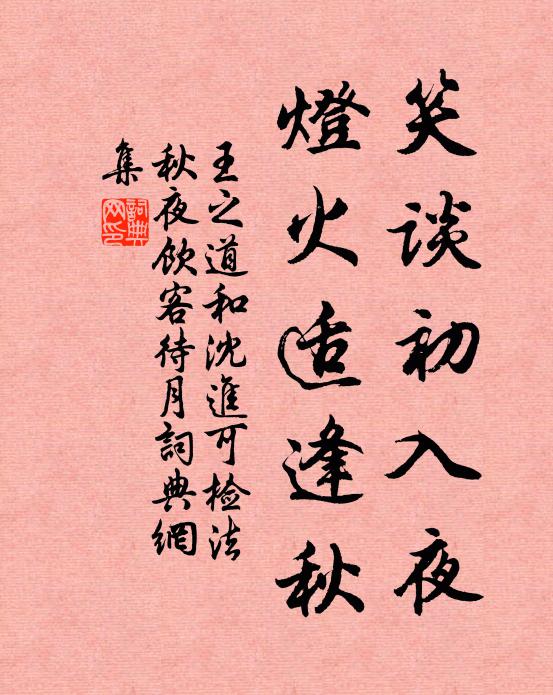 笑谈初入夜
燈火适逢秋
王之道和沈進可检法
秋夜飲客待月詞典網
集
詞典网印